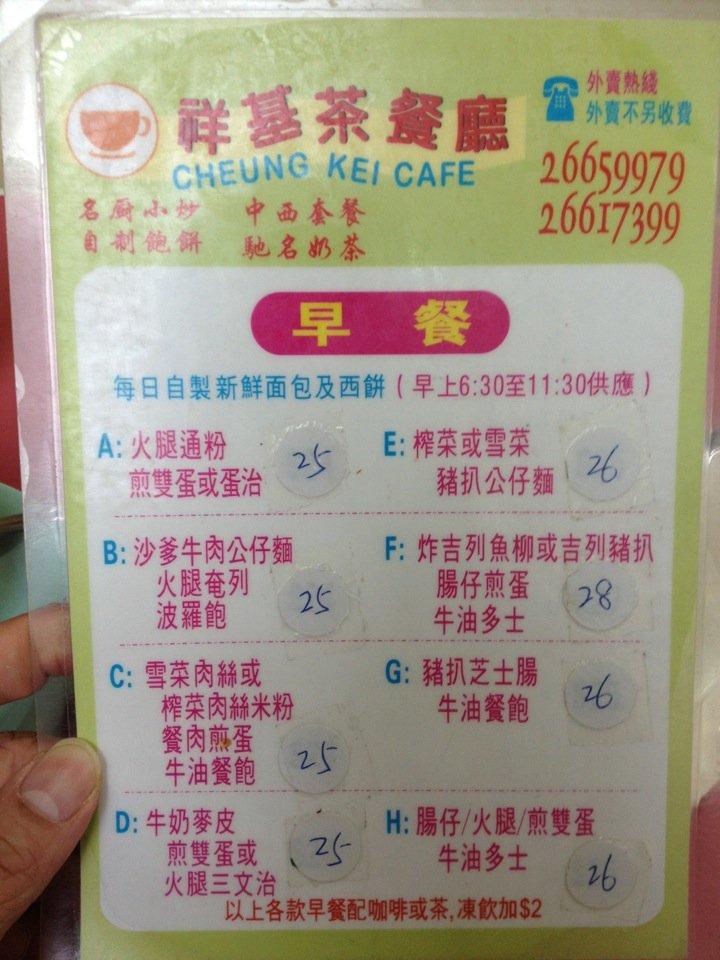 祥基茶餐廳
CHEUNG KEI CAFE
外賣熱綫
外賣不另收費
26659979
26617399
名厨小炒 中西套餐
自制飽餅 馳名奶茶
早餐
每日自製新鮮面包及西餅 ( 早上6:30至11:30供應 )
A: 火腿通粉
煎雙蛋或蛋治
25
B: 沙爹牛肉公仔麵
火腿奄列
波羅飽
25
C: 雪菜肉絲或
榨菜肉絲米粉
餐肉煎蛋
牛油餐飽
25
D: 牛奶麥皮
煎雙蛋或
火腿三文治
25
E: 榨菜或雪菜
豬扒公仔麵
26
F: 炸吉列魚柳或吉列豬扒
腸仔煎蛋
牛油多士
28
G: 豬扒芝士腸
牛油餐飽
26
H: 腸仔/火腿/煎雙蛋
牛油多士
26
以上各款早餐配咖啡或茶,凍飲加$2